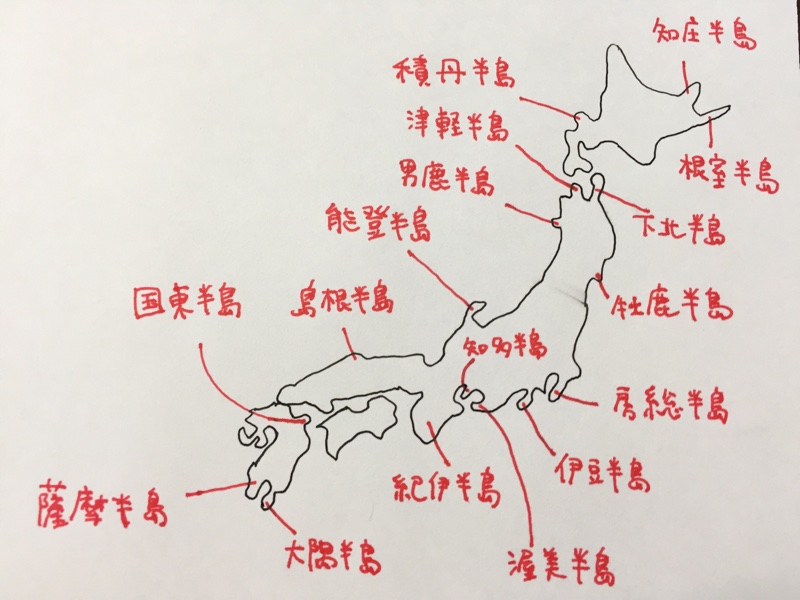 知庄半島
積丹半島
津軽半島
根室半島
男鹿半島
能登半島
下北半島
国東半島
島根半島
牡鹿半島
知多半島
房総半島
伊豆半島
紀伊半島
薩摩半島
大隅半島
渥美半島